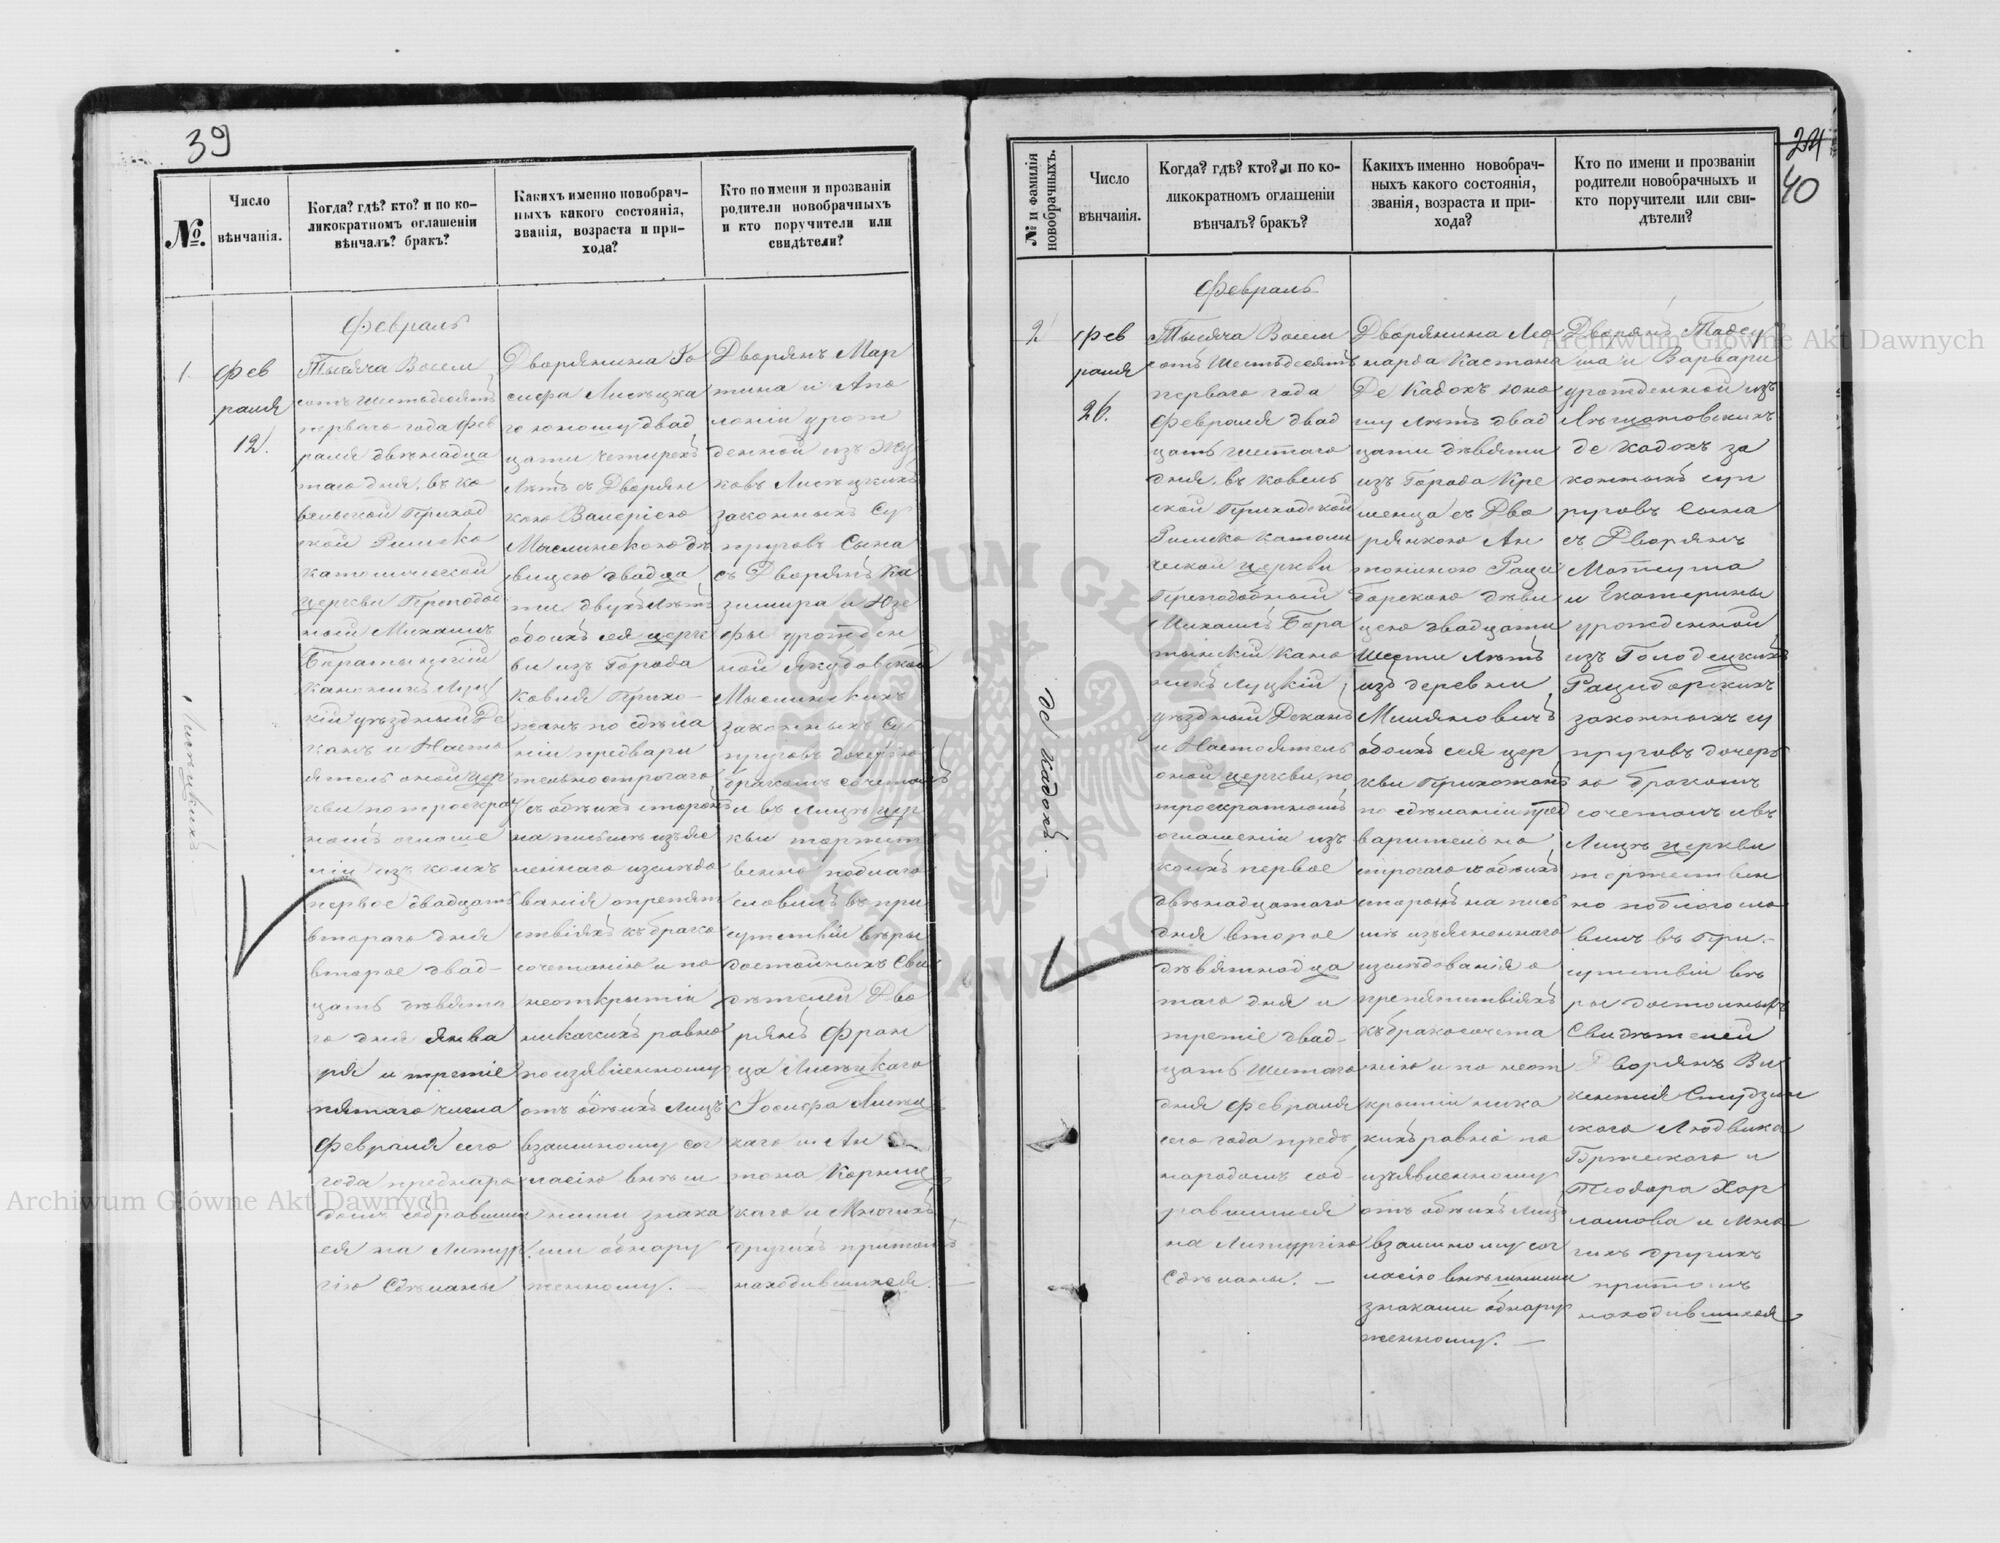 39
№.
Число
вѣнчанія.
Когда? гдѣ? кто? и по ко-
ликократномъ оглашеніи
вѣнчалъ? бракъ?
Какихъ именно новобрач-
ныхъ какого состоянія,
званія, возраста и при-
хода?
Кто по имени и прозваніи
родители новобрачныхъ
и кто поручители или
свидѣтели?
1.
Фев
раля
12.
Лисѣцкихъ.
Февраль
Тысяча Восем
сотъ Шестьдесятъ
перваго года Фев
раля двѣнадца
таго дня, въ Ко
вельской Приход
ской Римско
Католической
Церкви Преподоб
ный Михаилъ
Баратынскій
Каноникъ Луц
кій уѣздный Де
канъ и Насто
ятель оной Цер
кви по троекрат
номъ оглаше
ніи изъ коихъ
первое двадцать
втораго дня
второе двад-
цать девято
го дня Янва
ря и третіе
пятаго числа
Февраля сего
года предъ наро
домъ собравшим
ся на Литур
гію Сдѣланы
Дворянина Іо
сифа Лисѣцка
го юношу двад
цати четырехъ
Лѣтъ съ Дворян
кою Валеріею
Мыслинскою дѣ
вицею двадца
ти двухъ Лѣтъ
обоихъ сея церк
ви изъ Города
Ковля Прихо-
жанъ по сдѣла
ніи предвари
тельно строгаго
съ обѣихъ сторонъ
на письмѣ изъяс
неннаго изслѣдо
ванія о препят
ствіяхъ къ брако
сочетанію и по
неоткрытіи
никакихъ равно
по изявленному
отъ обѣихъ Лицъ
взаимному сог
ласію внѣш
ними знака
ми обнару
женному. —
Дворянъ Мар
тина и Апо
лоніи урож
денной изъ Жу
ковъ Лисѣцкихъ
законныхъ Су
пруговъ Сына
съ Дворянъ Ка
зимира и Юзе
фы урожден
ной Якубовской
Мыслинскихъ
законныхъ Су
пруговъ дочерью
бракомъ сочеталъ
и въ Лицѣ Цер
кви торжест
венно поблаго
словилъ въ при
сутствіи вѣры
достойныхъ Сви
дѣтелей Дво
рянъ Фран
ца Лисѣцкаго
Іосифа Лисѣц
каго и Ан
тона Корниц
каго и Многихъ
другихъ притомъ
находившихся.
24
40
№ и фамилія
новобрачныхъ.
Число
вѣнчанія.
Когда? гдѣ? кто? и по ко-
ликократномъ оглашеніи
вѣнчалъ? бракъ?
Какихъ именно новобрач-
ныхъ какого состоянія,
званія, возраста и при-
хода?
Кто по имени и прозваніи
родители новобрачныхъ и
кто поручители или сви-
дѣтели?
2
Фев
раля
26.
де Кадохъ.
Февраль
Тысяча Восем
сотъ Шестьдесятъ
перваго года
Февраля двад
цать шестаго
дня, въ Ковель
ской Приходской
Римско Католи
ческой церкви
Преподобный
Михаилъ Бора
тынскій Кано
никъ Луцкій
уѣздный Деканъ
и Настоятель
оной церкви, по
троекратномъ
оглашеніи изъ
коихъ первое
двѣнадцатаго
дня второе
дѣвятнадца
таго дня и
третіе двад-
цать шестаго
дня Февраля
сего года предъ
народомъ соб-
равшимся
на Литургію
Сдѣланы. —
Дворянина Лео
нарда Каетана
Де Кадохъ юно
шу лѣтъ двад
цати дѣвяти
изъ Города Кре
менца съ Дво
рянкою Ан
тониною Раци
борскою дѣви
цею двадцати
Шести Лѣтъ
изъ деревни
Миляновичъ
обоихъ сея цер
кви Прихожанъ
по сдѣланіи пред
варительно
строгаго съ обѣихъ
сторонъ на пись
мѣ изъясненнаго
изслѣдованія о
препятствіяхъ
къ бракосочета
нію и по неот
крытіи ника
кихъ равно по
изъявленному
отъ обѣихъ Лицъ
взаимному сог
ласію внѣшними
знаками обнару
женному. —
Дворянъ Тадеу
ша и Варвары
урожденной изъ
де Кадохъ за
конныхъ суп
руговъ Сына
съ Дворянъ
Матеуша
и Екатерины
урожденной
изъ Голодецкихъ
Рациборскихъ
законныхъ су
пруговъ дочерь
ю бракомъ
сочеталъ и въ
Лицѣ церкви
торжествен
но поблагосло
вилъ въ При-
сутствіи вѣ
ры достойныхъ
Свидѣтелей
Дворянъ Ви
кентія Студзин
скаго Людвика
Бржескаго и
Теодора Хар
ламова и Мно
гихъ другихъ
притомъ
находившихся
Archiwum Główne Akt Dawnych
Archiwum Główne Akt Dawnych
ARCHIWUM GŁÓWNE AKT DAWNYCH